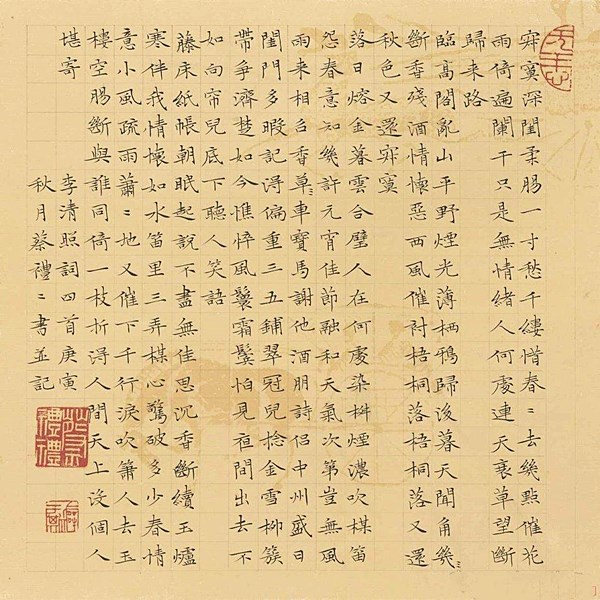 寂寞深閨柔腸一寸愁千縷惜春〻去幾點催花
雨倚遍闌干只是無情緒人何處連天衰草望斷
歸來路
臨高閣亂山平野煙光薄栖鴉歸後暮天聞角幾〻
斷香殘酒情懷惡西風催衬梧桐落梧桐落又還
秋色又還寂寞
落日熔金暮雲合璧人在何處染柳煙濃吹楳笛
怨春意知幾許元宵佳節融和天氣次第豈無風
雨來相召香草〻車寶馬謝他酒朋詩侶中州盛日
閨門多暇記得偏重三五鋪翠冠兒捻金雪柳簇
帶爭濟楚如今憔悴風鬟霜鬢怕見夜間出去不
如向帘兒底下聽人笑語
藤床紙帳朝眠起說不盡無佳思沉香斷續玉爐
寒伴我情懷如水笛里三弄楳心驚破多少春情
意小風疏雨蕭〻地又催下千行淚吹簫人去玉
樓空腸斷與誰同倚一枝折得人間天上沒個人
堪寄
李清照詞四首庚寅
秋月蔡禮〻書並記